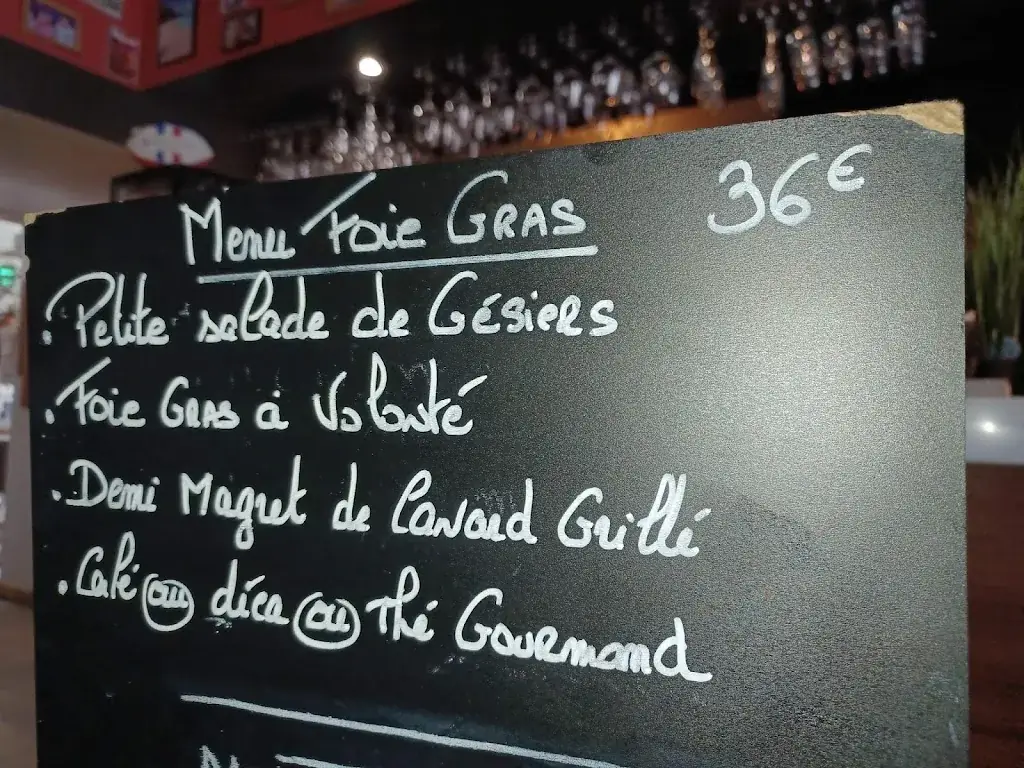 Menu Foie GRAS 36€
. Petite salade de Gésiers
. Foie GRAS à Volonté
. Demi Magret de Canard Grillé
. Café ou déca ou Thé Gourmand